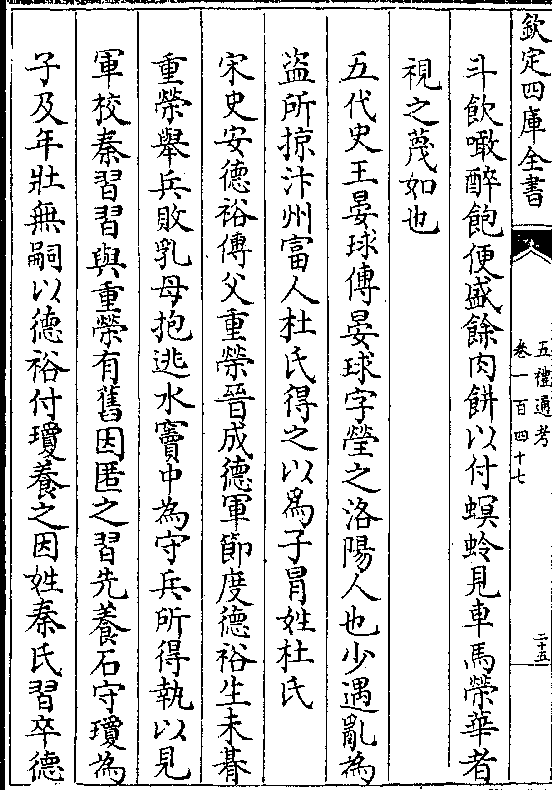 欽定四庫全書
五禮通考
卷一百四十七
二十五
斗飲噉醉飽便盛餘肉餅以付螟蛉見車馬榮華者
視之蔑如也
五代史王晏球傳晏球字瑩之洛陽人也少遇亂為
盜所掠汴州富人杜氏得之以為子冒姓杜氏
宋史安德裕傳父重榮晉成德軍節度德裕生未朞
重榮舉兵敗乳母抱逃水竇中為守兵所得執以見
軍校秦習習與重榮有舊因匿之習先養石守瓊為
子及年壯無嗣以德裕付瓊養之因姓秦氏習卒德